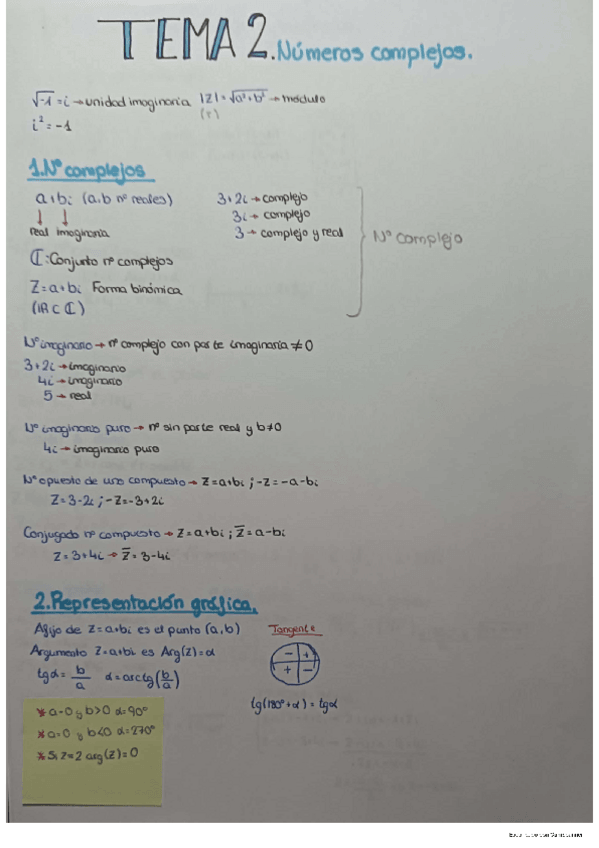 TEMA 2. Números complejos.
√-1 = i → unidad imaginaria |Z| = √a²+b² → módulo
(r)
i² = -1
1. Nº complejos
a+bi (a,b nº reales)
real imaginaria
3+2i → complejo
3i → complejo
3 → complejo y real
Nº complejo
ℂ: Conjunto nº complejos
Z=a+bi Forma binómica
(IR ⊂ ℂ)
Nº imaginario → nº complejo con parte imaginaria ≠ 0
3+2i → imaginario
4i → imaginario
5 → real
Nº imaginario puro → nº sin parte real y b≠0
4i → imaginario puro
Nº opuesto de uno compuesto → Z=a+bi ; -Z=-a-bi
Z=3-2i ; -Z=-3+2i
Conjugado nº compuesto → Z=a+bi ; Z̅=a-bi
Z=3+4i → Z̅=3-4i
2. Representación gráfica.
Afijo de Z=a+bi es el punto (a,b)
Argumento Z=a+bi es Arg(Z)=α
tgα = b/a α=arctg(b/a)
Tangente
- +
+ -
tg(180°+α) = tgα
* a=0 y b>0 α=90°
* a=0 y b<0 α=270°
* Si z=2 arg(z)=0